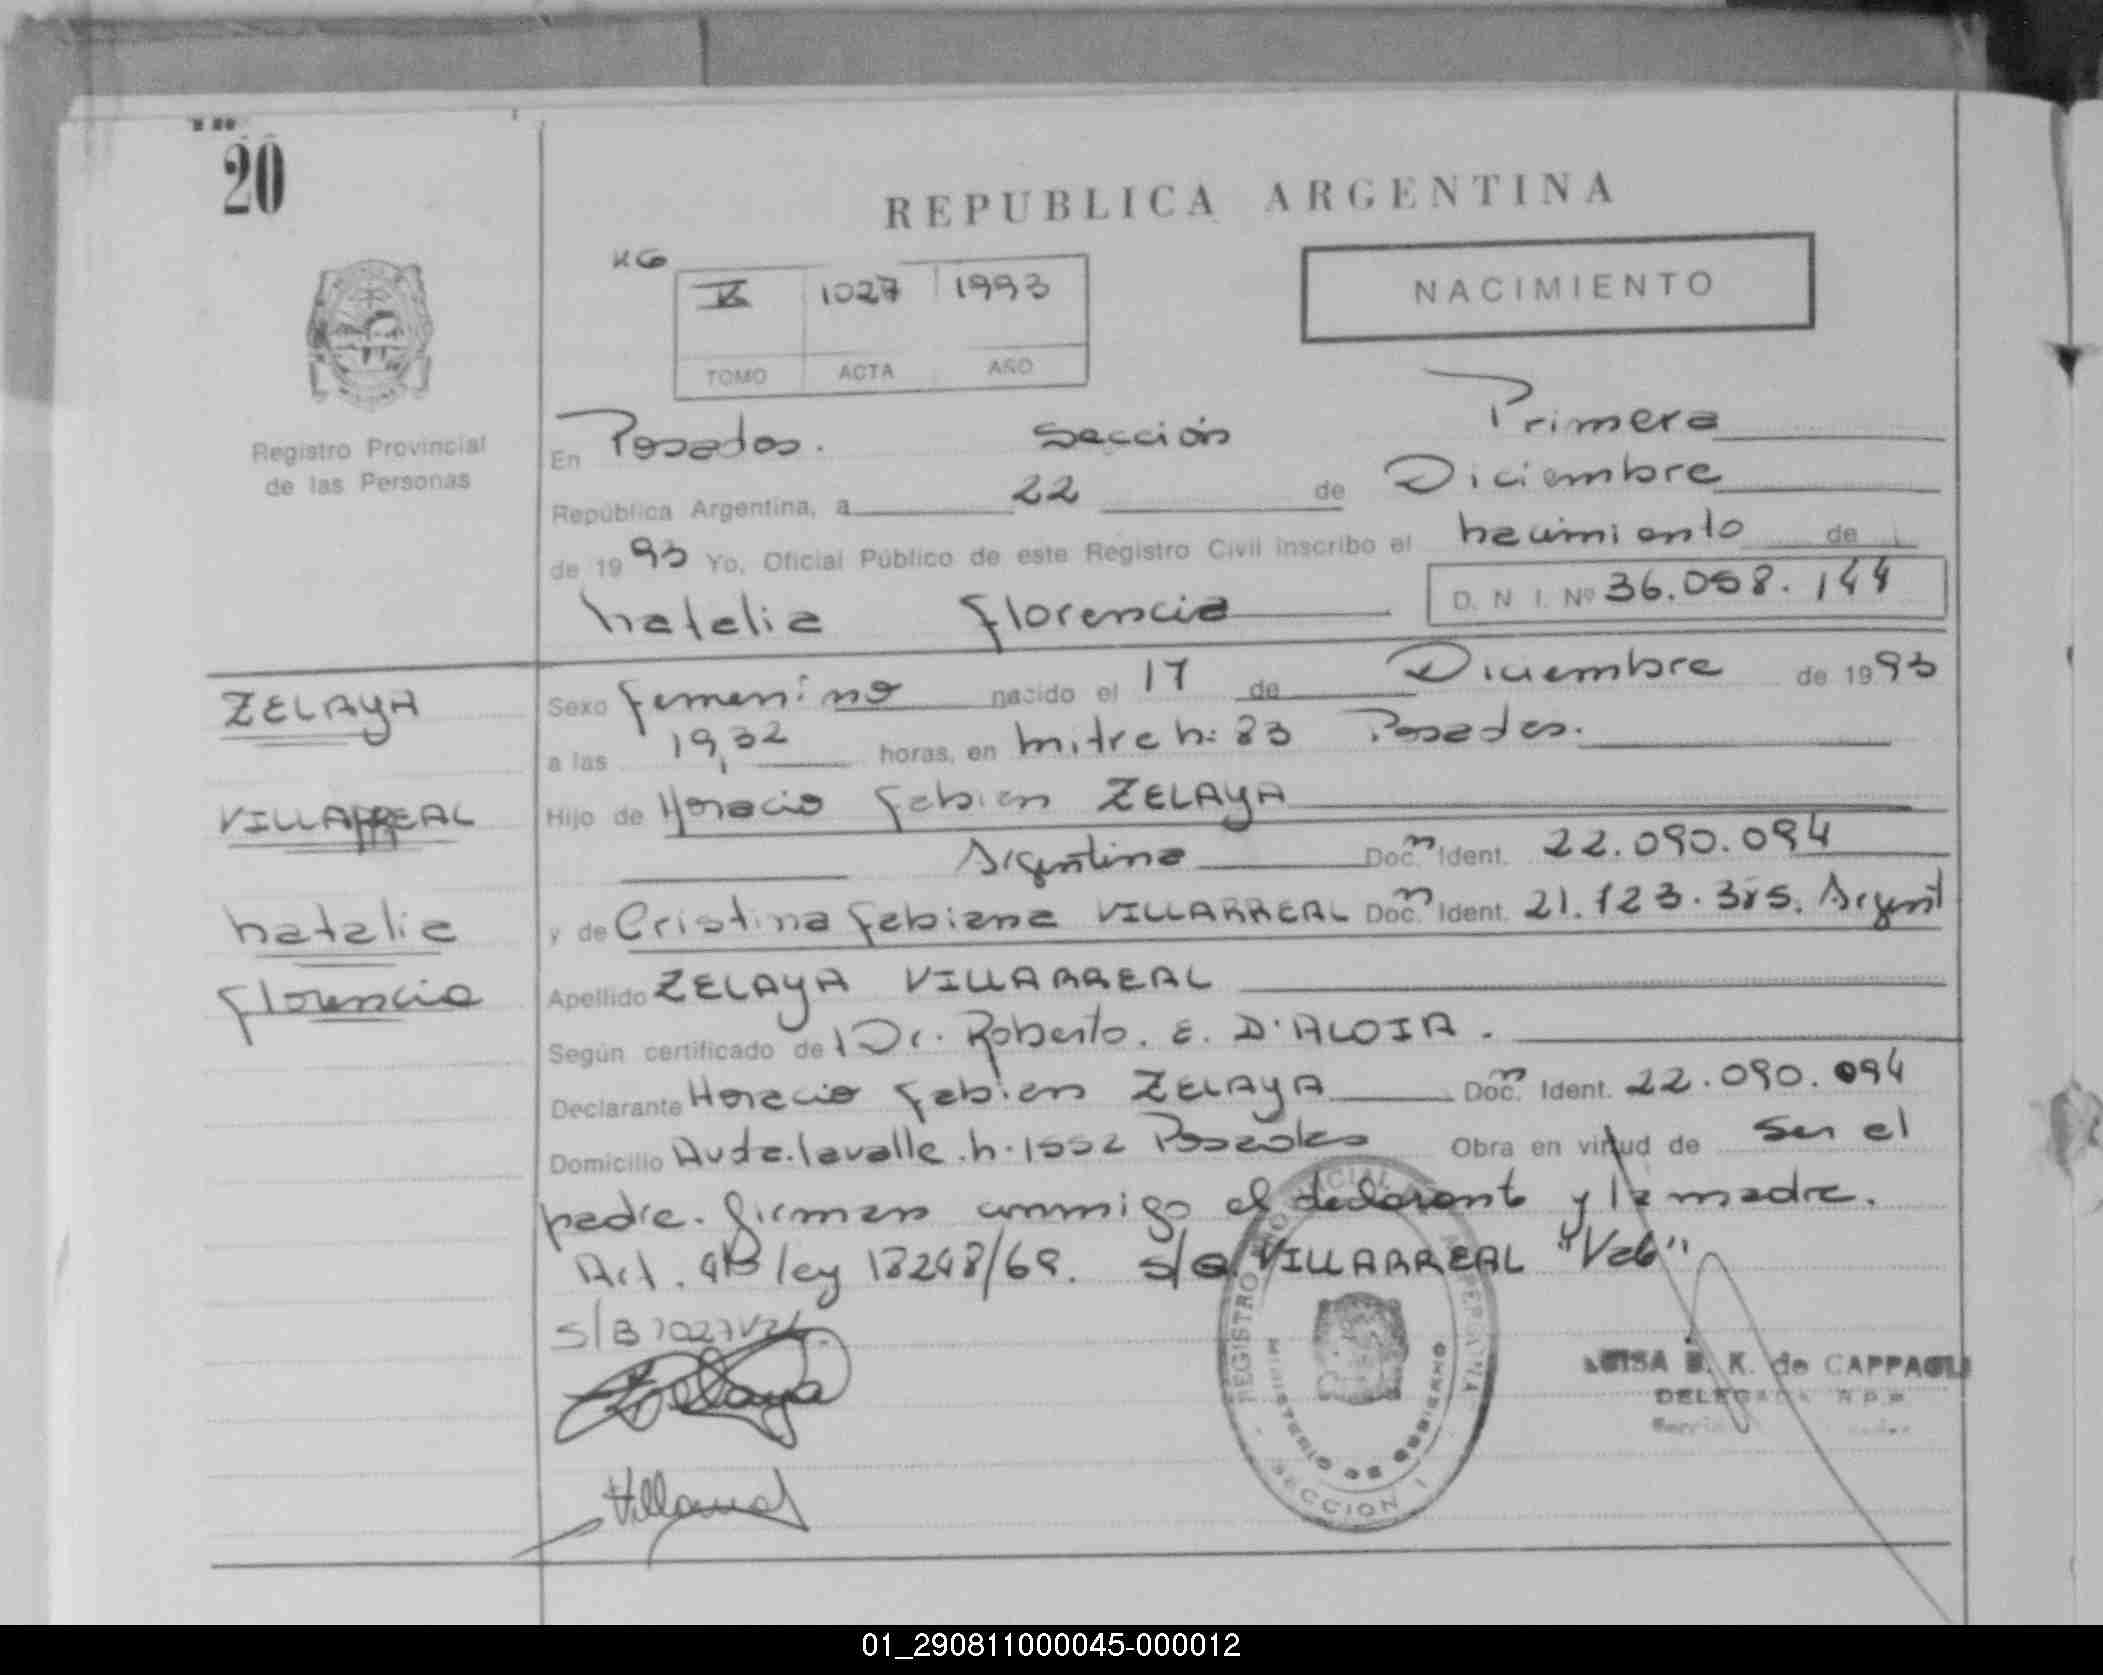 20
REPUBLICA ARGENTINA
NACIMIENTO
1027 1993
TOMO ACTA AÑO
Registro Provincial
de las Personas
En Posadas. Sección Primera
República Argentina, a 22 de Diciembre
de 1993 Yo, Oficial Público de este Registro Civil inscribo el nacimiento de
Natalia Florencia D. N I. Nº 36.058.144
ZELAYA
VILLARREAL
Natalia
Florencia
Sexo femenino nacido el 17 de Diciembre de 1993
a las 19,32 horas, en Mitre N: 83 Posadas.
Hijo de Horacio Fabian ZELAYA
Argentino Doc. Ident. 22.090.094
y de Cristina Fabiana VILLARREAL Doc. Ident. 21.123. Argent
Apellido ZELAYA VILLARREAL
Según certificado de Dr. Roberto. E. D'ALOIA.
Declarante Horacio Fabian ZELAYA Doc. Ident. 22.090.094
Domicilio Avda. Lavalle. N. 1552 Posadas Obra en virtud de ser el
padre. Firman conmigo el declarante y la madre.
Art. ley 18248/69. VILLARREAL "Vale"
S/B 1027 Vale
Zelaya
Villarreal
REGISTRO PROVINCIAL DE LAS PERSONAS
MINISTERIO DE GOBIERNO
SECCION I
LUISA B. K. de CAPPAGLI
DELEGADA R.P.P.
01_290811000045-000012